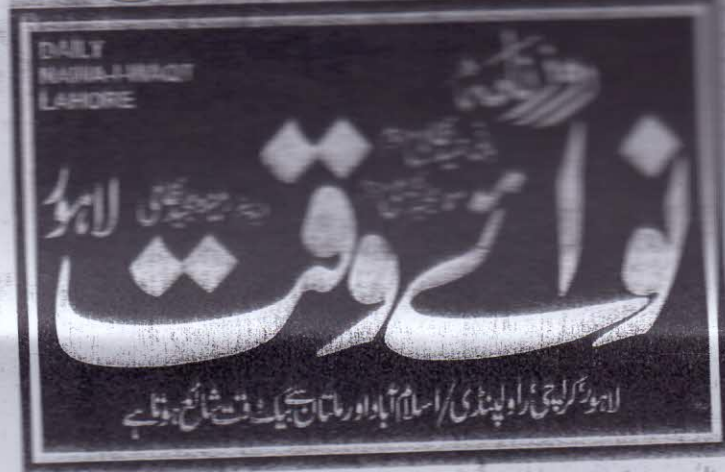 DAILY
NAWA-I-WAQT
LAHORE
روزنامہ
نوائے وقت
لاہور
لاہور، کراچی، راولپنڈی/اسلام آباد اور ملتان سے بیک وقت شائع ہوتا ہے